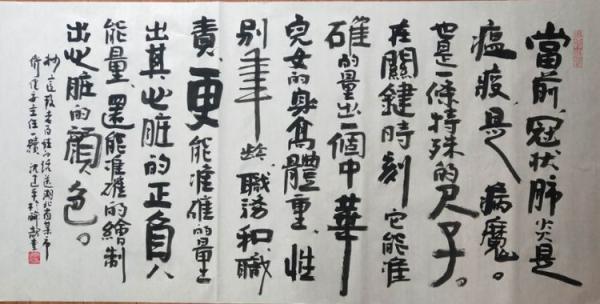 當前,冠狀肺炎是
瘟疫,是病魔。
也是一條特殊的尺子。
在關鍵時刻,它能准
確的量出一個中華
兒女的身高體重,性
別年齡,職務和職
責,更能准確的量
出其心脏的正負
能量,還能准確的繪制
出心脏的顏色。
湖北省某市
主任一